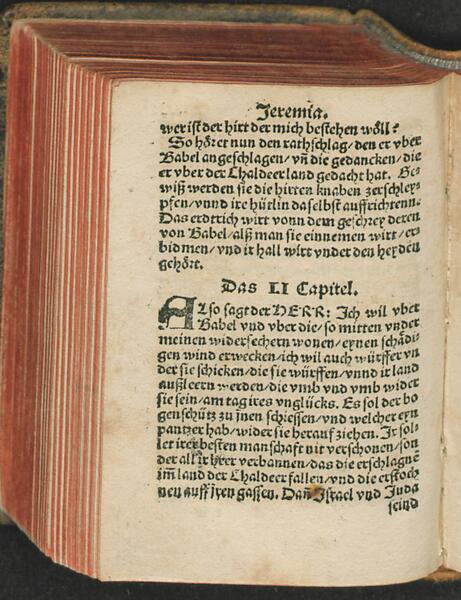 Jeremia.
wer ist der hirt der mich bestehen wöll?
So höret nun den rathschlag / den er vber
Babel angeschlagen / vñ die gedancken / die
er vber der Chaldeer land gedacht hat. Ge-
wiß werden sie die hirten knaben zerschley-
pfen / vnnd ire hütlin daselbst auffrichtenn.
Das erdtrich wirt vonn dem geschrey deren
von Babel / alß man sie einnemen wirt / er-
bidmen / vnd ir hall wirt vnder den heyden
gehört.
Das LI Capitel.
Also sagt der HERR: Ich wil vber
Babel vnd vber die / so mitten vnder
meinen widersechern wonen / eynen schädi-
gen wind erwecken / ich wil auch würffer vn
der sie schicken / die sie würffen / vnnd ir land
außleern werden / die vmb vnd vmb wider
sie sein / am tag ires vnglücks. Es sol der bo
genschütz zu jnen schiessen / vnd welcher eyn
pantzer hab / wider sie herauf ziehen. Ir sol-
let irer besten manschaft nit verschonen / son
der all ir herr verbannen / das die erschlagnē
im̄ land der Chaldeer fallen / vnd die erstoch
nen auff jren gassen. Dañ Israel vnd Juda
seind